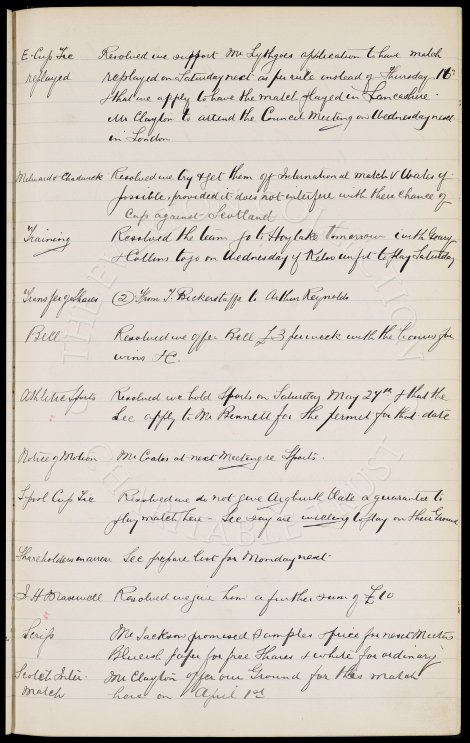 E. Cup Tie Resolved we support Mr Lythgoes application to have match
replayed replayed on Saturday next as per rule instead of Thursday 16th
& that we apply to have the match played in Lancashire.
Mr Clayton to attend the Council Meeting on Wednesday next
in London
Milward & Chadwick Resolved we try & get them off International match v Wales if
possible, provided it does not interfere with their chance of
Cap against Scotland
Training Resolved the team go to Hoylake tomorrow with Geary
& Collins to go on Wednesday if Kelso unfit to play Saturday
Transfer of Shares (2) From T. Bickerstaffe to Arthur Reynolds
Bell Resolved we offer Bell £3 per week with the bonus for
wins &c.
Athletic Sports Resolved we hold Sports on Saturday May 27th & that the
Sec apply to Mr Bennett for the permit for that date
Notice of Motion Mr Coates at next Meeting re Sports.
L'pool Cup Tie Resolved we do not give Aigburth Vale a guarantee to
play match here - Sec say are willing to play on their Ground
Shareholders in arrear Sec prepare list for Monday next
Resolved we give him a further sum of £10
Scrip Mr Jackson promised samples & price for next Meeting
Blueish paper for free Shares & white for ordinary
Scotch Inter- Mr Clayton offer our Ground for this match
Match here on April 1st